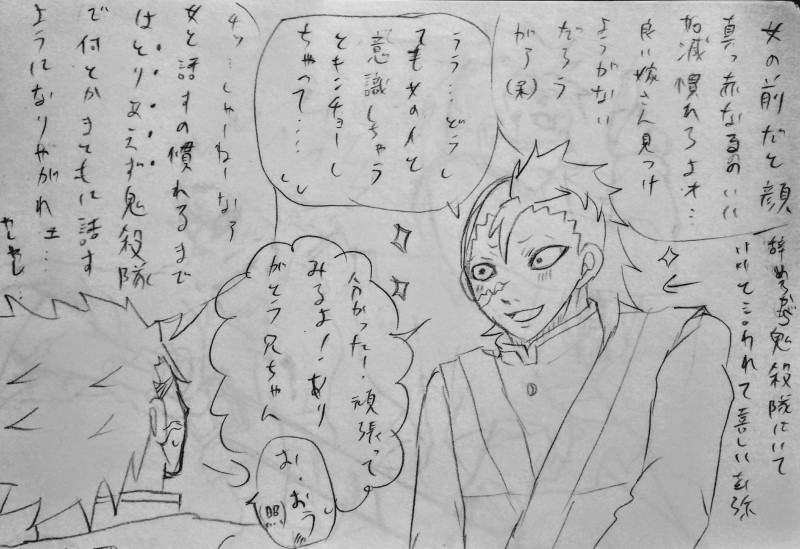 女の前だと顔
真っ赤なるのいい
加減慣れろよォ…
良い嫁さん見つけ
ようがない
だろう
がァ(呆)
うう…どうし
ても女の人と
意識しちゃう
とキンチョーし
ちゃって……
チッ…しゃーねーなァ
女と話すの慣れるまで
はとりあえず鬼殺隊
で何とかまともに話す
ようになりやがれェ…
ヤレヤレ…
分かった!頑張って
みるよ!あり
がとう兄ちゃん
お、おう
(照)
辞めろから鬼殺隊にいて
いいと言われて喜しい玄弥